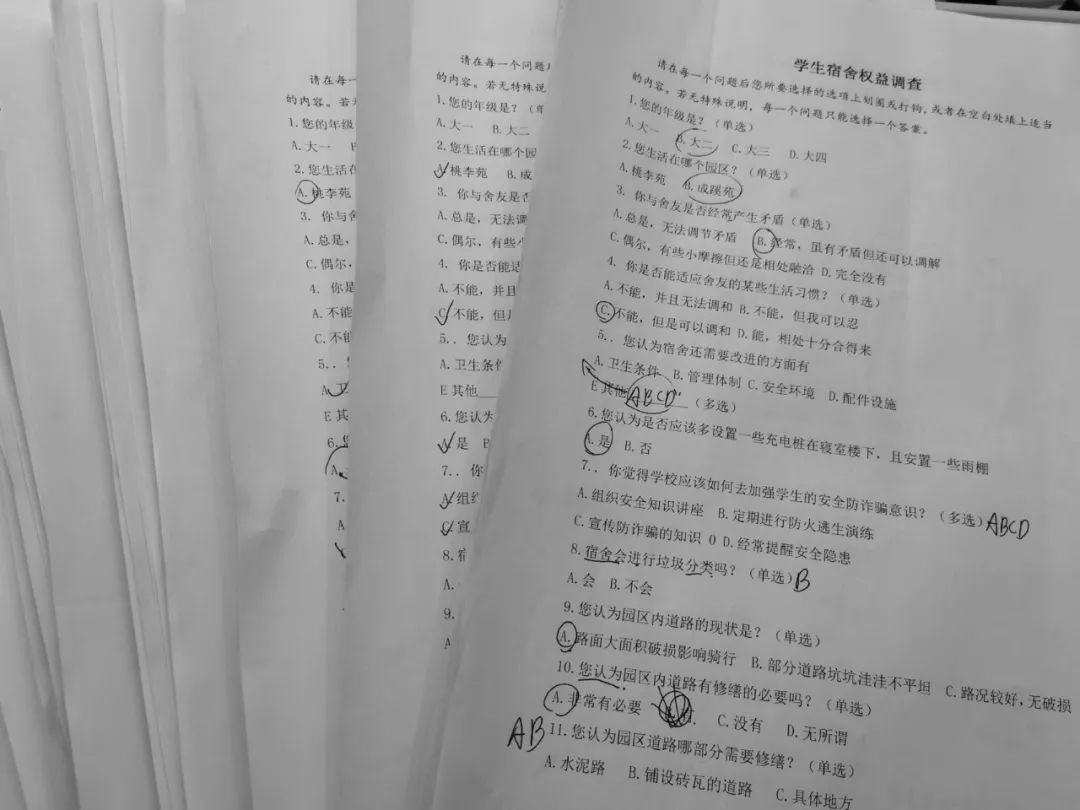 请在每一
的内容。若
1.您的年级
A.大一 B
2.您生活在
A.桃李苑
3. 你与舍
A.总是,
C.偶尔,
4. 你是
A.不能
C.不能
5..
E 其
6.
7.
A
请在每一个问题
的内容。若无特殊说
1.您的年级是?(单
A.大一 B.大二
2.您生活在哪个园
A.桃李苑 B.成
3. 你与舍友是否
A.总是,无法调
C.偶尔,有些小
4. 你是否能适
A.不能,并且
C.不能,但是
5.. 您认为
A.卫生条件
E 其他
6.您认为
A.是 B
7.. 你
A.组织
C.宣
8.宿
A.
9.
A
学生宿舍权益调查
请在每一个问题后您所要选择的选项上划圈或打钩,或者在空白处填上适当
的内容。若无特殊说明,每一个问题只能选择一个答案。
1.您的年级是?(单选)
A.大一 B.大二 C.大三 D.大四
2.您生活在哪个园区?(单选)
A.桃李苑 B.成蹊苑
3. 你与舍友是否经常产生矛盾(单选)
A.总是,无法调节矛盾 B.经常,虽有矛盾但还可以调解
C.偶尔,有些小摩擦但还是相处融洽 D.完全没有
4. 你是否能适应舍友的某些生活习惯?(单选)
A.不能,并且无法调和 B.不能,但我可以忍
C.不能,但是可以调和 D.能,相处十分合得来
5.. 您认为宿舍还需要改进的方面有
A.卫生条件 B.管理体制 C.安全环境 D.配件设施
E 其他 ABCD (多选)
6.您认为是否应该多设置一些充电桩在寝室楼下,且安置一些雨棚
A.是 B.否
7.. 你觉得学校应该如何去加强学生的安全防诈骗意识?(多选) ABCD
A.组织安全知识讲座 B.定期进行防火逃生演练
C.宣传防诈骗的知识 0 D.经常提醒安全隐患
8.宿舍会进行垃圾分类吗?(单选) B
A.会 B.不会
9.您认为园区内道路的现状是?(单选)
A.路面大面积破损影响骑行 B.部分道路坑坑洼洼不平坦 C.路况较好,无破损
10.您认为园区内道路有修缮的必要吗?(单选)
A.非常有必要 C.没有 D.无所谓
AB 11.您认为园区道路哪部分需要修缮?(单选)
A.水泥路 B.铺设砖瓦的道路 C.具体地方